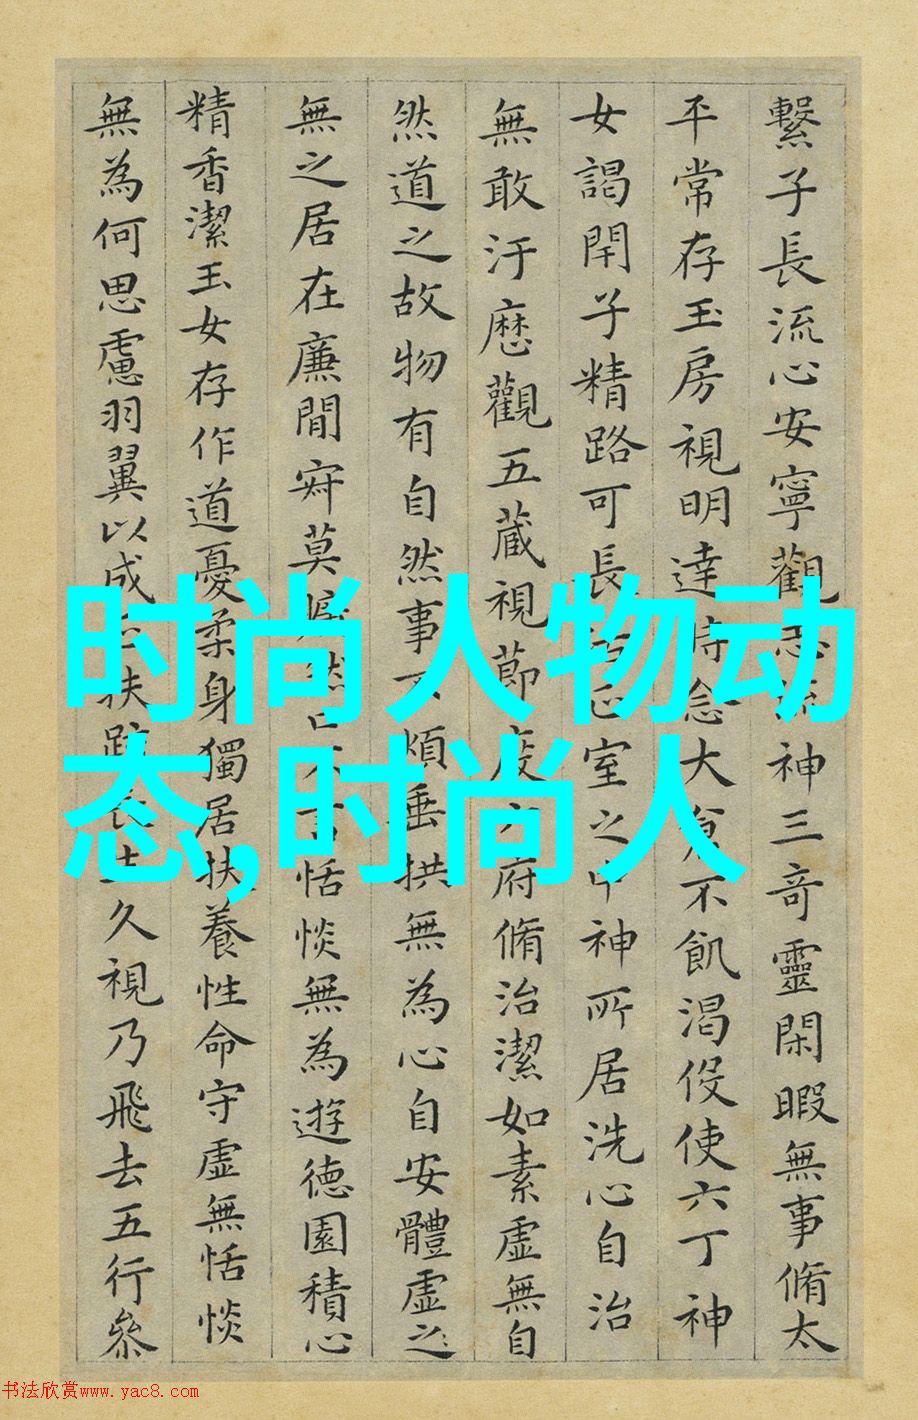 繫子長流心安寧觀志流神三奇靈閑暇無事脩太
平常存玉房視明達時念大倉不飢渴伇使六丁神
女謁閇子精路可長活正室之中神所居洗心自治
無敢汙歷觀五藏視節度六府脩治潔如素虛無自
然道之故物有自然事不煩垂拱無為心自安體虛之
無之居在廉間㝛莫曠然口不言恬惔無為遊德園積心
精香潔玉女存作道憂柔身獨居扶養性命守虛無恬惔
無為何思慮羽翼以成正扶疏長生久視乃飛去五行參
时尚人物动
态,时尚人
书法欣赏www.yac8.com